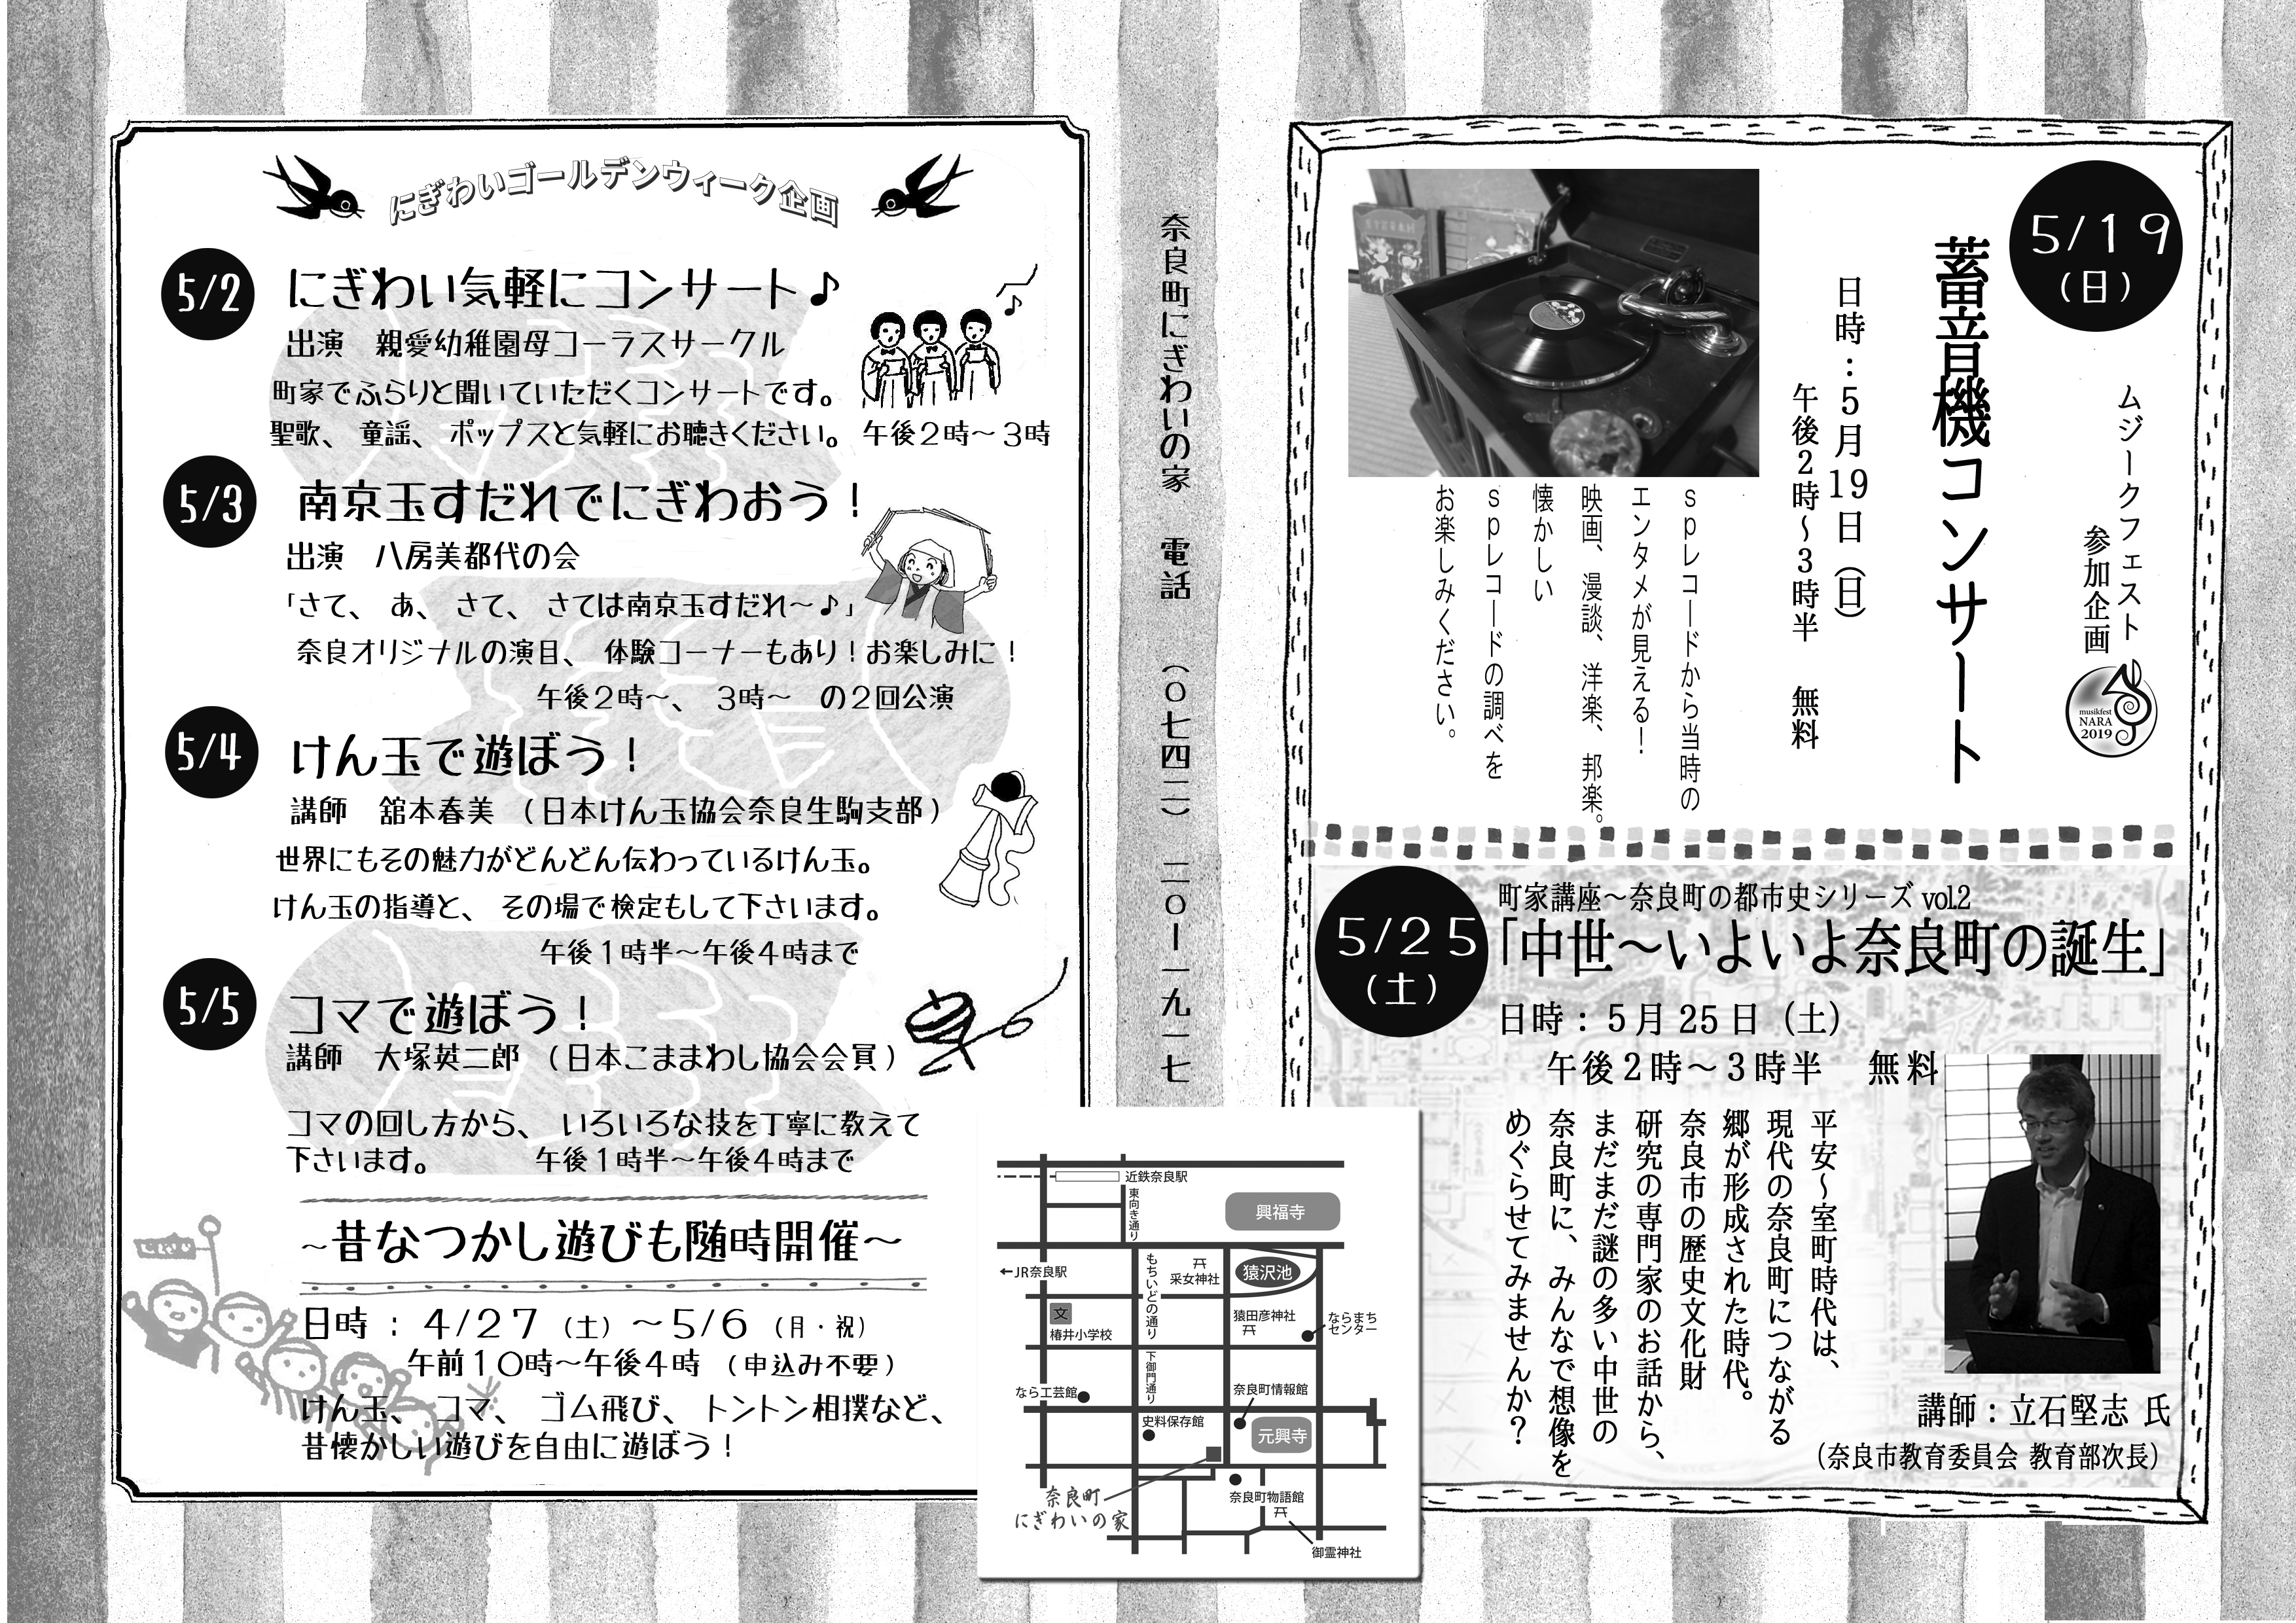 にぎわいゴールデンウィーク企画
5/2
にぎわい気軽にコンサート♪
出演　親愛幼稚園母コーラスサークル
町家でふらりと聞いていただくコンサートです。
聖歌、童謡、ポップスと気軽にお聴きください。 午後２時～３時
5/3
南京玉すだれでにぎわおう！
出演　八房美都代の会
「さて、あ、さて、さては南京玉すだれ～♪」
奈良オリジナルの演目、体験コーナーもあり！お楽しみに！
午後２時～、３時～　の２回公演
5/4
けん玉で遊ぼう！
講師　舘本春美　（日本けん玉協会奈良生駒支部）
世界にもその魅力がどんどん伝わっているけん玉。
けん玉の指導と、その場で検定もして下さいます。
午後１時半～午後４時まで
5/5
コマで遊ぼう！
講師　大塚英二郎　（日本こままわし協会会員）
コマの回し方から、いろいろな技を丁寧に教えて
下さいます。　　　午後１時半～午後４時まで
～昔なつかし遊びも随時開催～
日時：４/２７（土）～５/６（月・祝）
午前１０時～午後４時（申込み不要）
けん玉、コマ、ゴム飛び、トントン相撲など、
昔懐かしい遊びを自由に遊ぼう！
奈良町にぎわいの家　電話　（〇七四二）二〇ー一九一七
5/19
（日）
ムジークフェスト
参加企画
musikfest
NARA
2019
蓄音機コンサート
日時：５月19日（日）
午後２時～３時半　無料
ｓｐレコードから当時の
エンタメが見える！
映画、漫談、洋楽、邦楽。
懐かしい
ｓｐレコードの調べを
お楽しみください。
5/25
（土）
町家講座～奈良町の都市史シリーズ vol.2
「中世～いよいよ奈良町の誕生」
日時：５月25日（土）
午後２時～３時半　無料
平安～室町時代は、
現代の奈良町につながる
郷が形成された時代。
奈良市の歴史文化財
研究の専門家のお話から、
まだまだ謎の多い中世の
奈良町に、みんなで想像を
めぐらせてみませんか？
講師：立石堅志 氏
（奈良市教育委員会 教育部次長）
近鉄奈良駅
東向き通り
興福寺
←JR奈良駅
もちいどの通り
采女神社
猿沢池
文
椿井小学校
猿田彦神社
ならまち
センター
下御門通り
なら工芸館
奈良町情報館
史料保存館
元興寺
奈良町
にぎわいの家
奈良町物語館
御霊神社